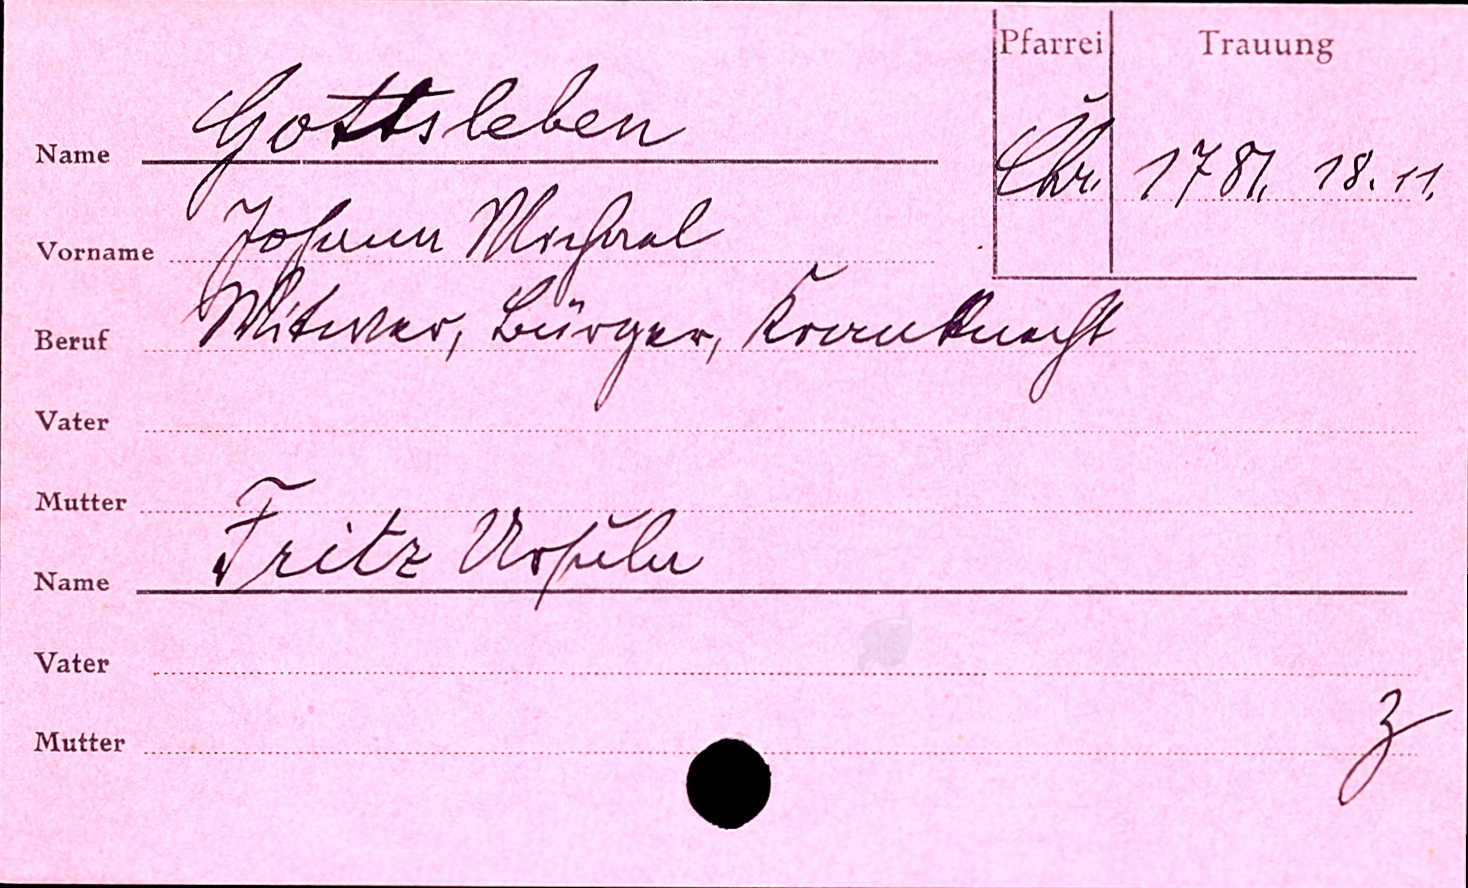 Pfarrei Trauung
Name Gottsleben
Chr. 1781. 18. 11.
Vorname Johann Michael
Beruf Witwer, Bürger, Krannknecht
Vater
Mutter
Name Fritz Ursula
Vater
Mutter
z